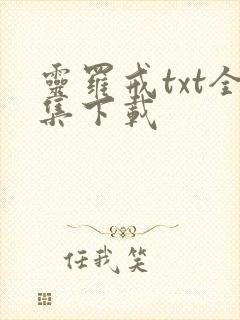 靈羅戒txt全
集下載
任我笑